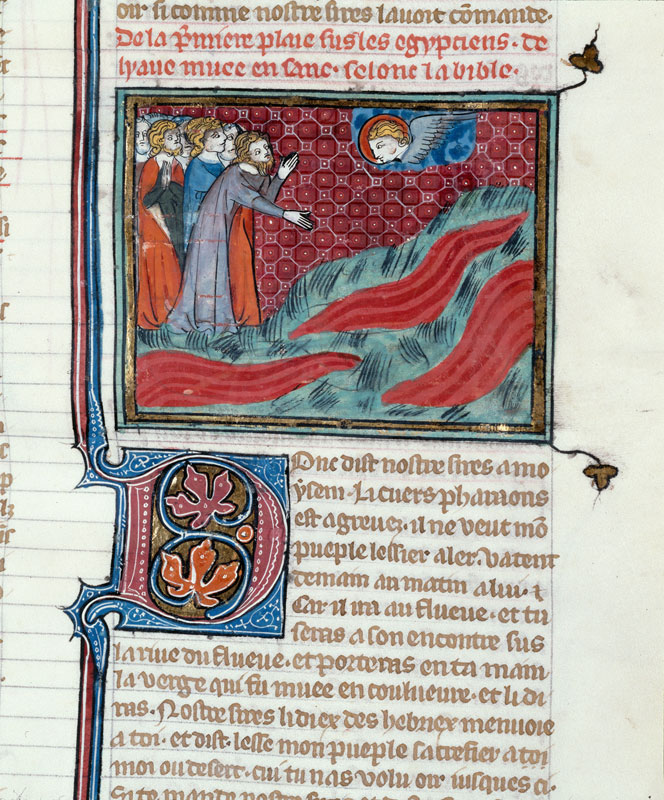 oir si comme nostre sires lavoit cōmande.
De la p̄miere plaie sus les egyptiens. de
lyaue muee en sanc. selonc la bible.
Donc dist nostre sires a mo
ysem. Li cuers pharaons
est agreuez. il ne veut mō
pueple lessier aler. Va tent
demain au matin a lui. ⁊
Car il ira au flueue. et tu
seras a son encontre sus
la riue du flueue. et porteras en ta main
la verge qui fu muee en couluevre. et li di
ras. Nostre sires li diex des hebriex menuoie
a toi. et dist. lesse mon pueple sacrefier a
moi ou desert. cui tu nas volu oir iusques ci.